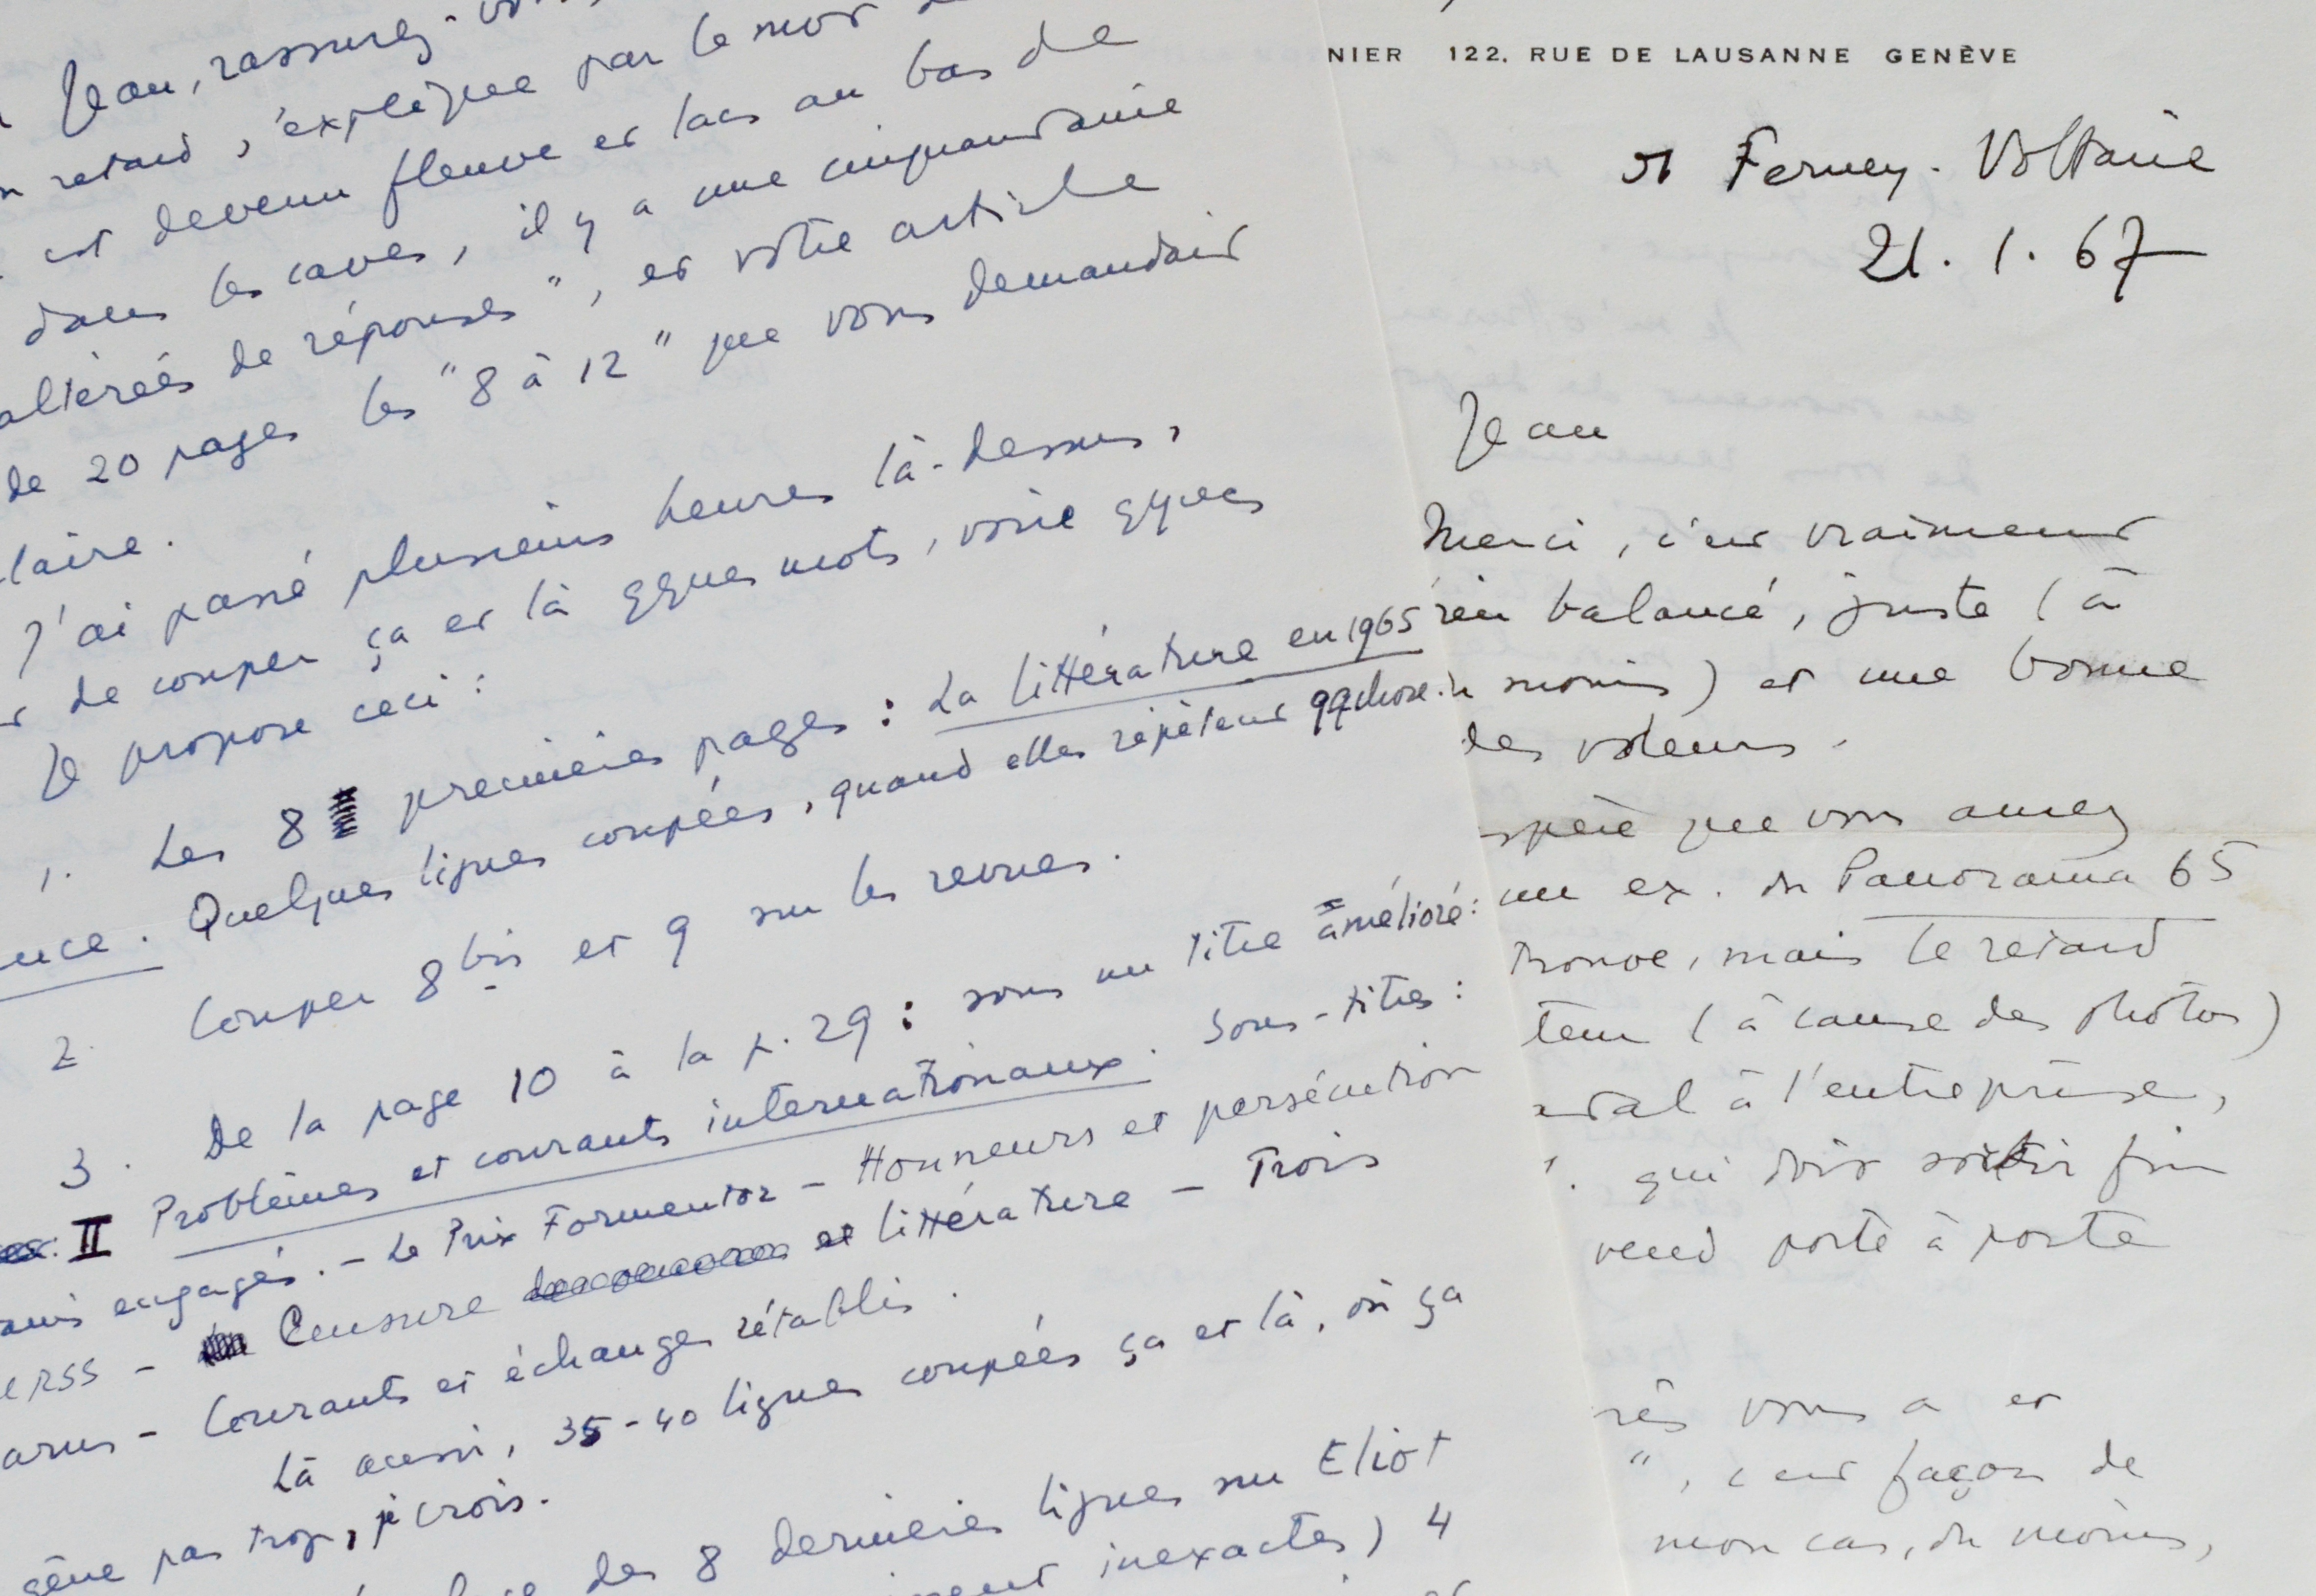 Jean, rassurez-
retard s'explique par le mot
est devenu fleuve et lacs au bas de
dans les caves, il y a une cinquantaine
altérées de réponses", et votre article
de 20 pages les "8 à 12" que vous demandait
laire.
J'ai passé plusieurs heures là-dessus,
de couper ça et là qques mots, voire qques
Je propose ceci :
1. Les 8 premières pages : La littérature en 1965
Quelques lignes coupées, quand elles répètent qqchose.
2. Couper 8 bis et 9 sur les revues.
3. De la page 10 à la p. 29 : sous un titre amélioré :
II Problèmes et courants internationaux. Sous-titres :
engagés. - Le Prix Formentor - Honneurs et persécution
URSS - Censure et littérature - Trois
- Courants et échanges rétablis.
Là aussi, 35-40 lignes coupées ça et là, où ça
gêne pas trop, je crois.
des 8 dernières lignes sur Eliot
inexactes) 4
NIER 122, RUE DE LAUSANNE GENÈVE
Ferney-Voltaire
21.1.67
Jean
Merci, c'est vraiment
balancé, juste (à
moins) et une bonne
des valeurs.
que vous aurez
un ex. du Panorama 65
trouve, mais le retard
(à cause des photos)
à l'entreprise,
qui doit sortir fin
vend porte à porte
vous a et
", c'est façon de
mon cas, du moins,